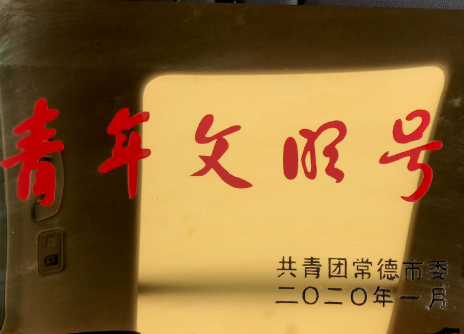 青年文明号
共青团常德市委
二〇二〇年一月